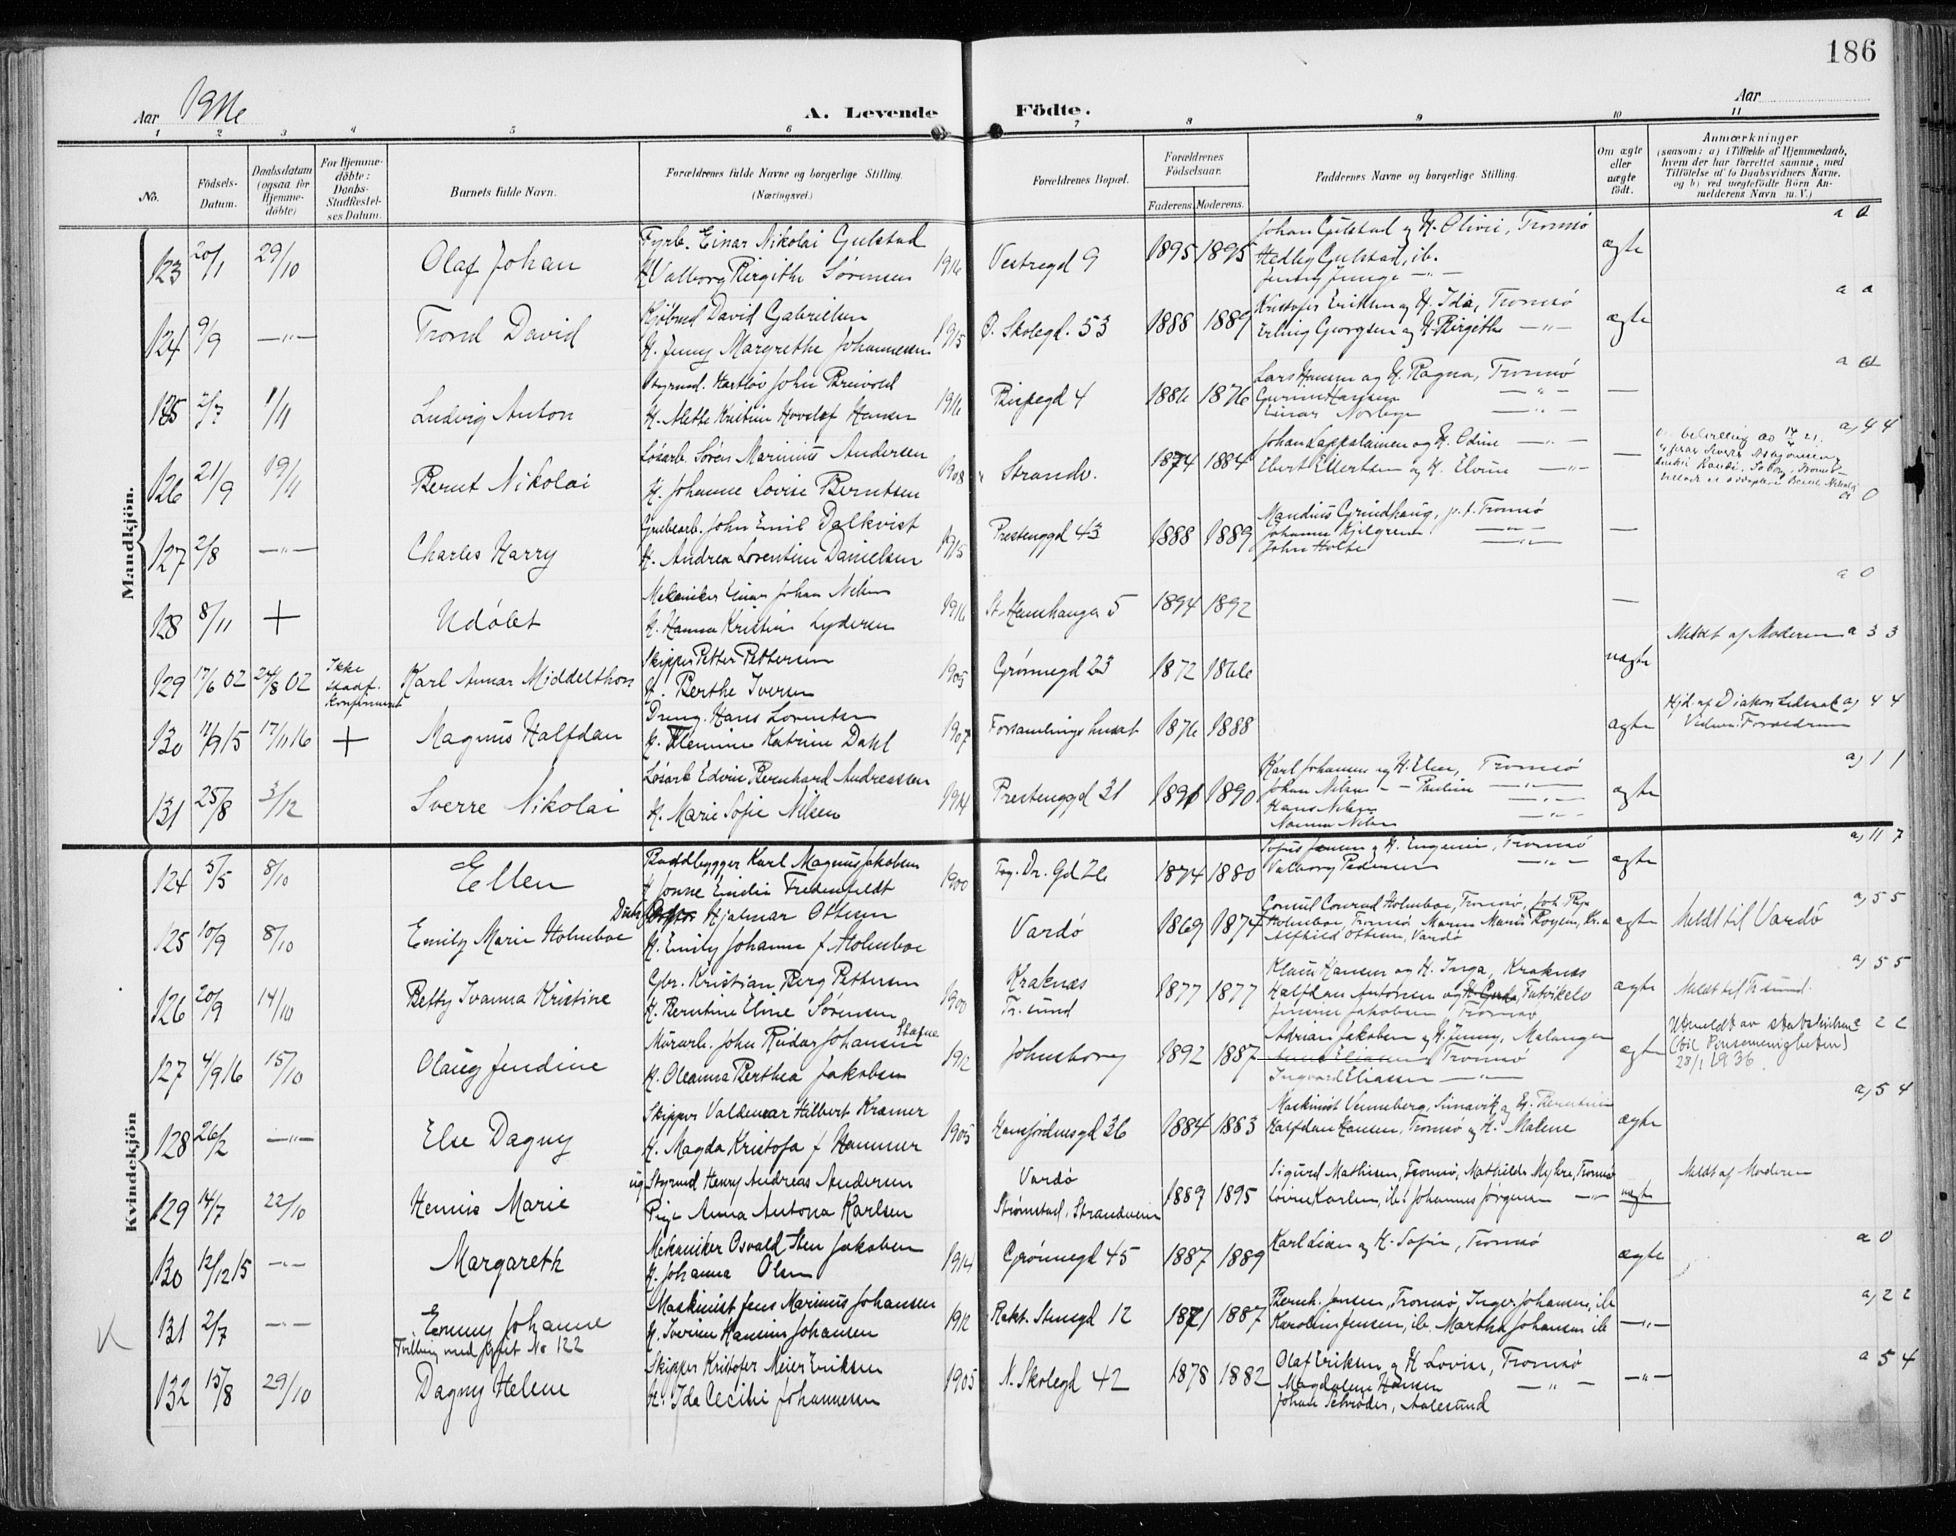 186
Aar 1916
A. Levende Födte.
Aar
1 2 3 4 5 6 7 8 9 10 11
No.
Födsels-Datum.
Daabsdatum (ogsaa for Hjemme-döbte)
For Hjemme-döbte: Daabs-Stadfæstel-ses Datum.
Barnets fulde Navn.
Forældrenes fulde Navne og borgerlige Stilling.
(Næringsvei.)
Forældrenes Bopæl.
Forældrenes Födselsaar.
Faderens. Moderens.
Faddernes Navne og borgerlige Stilling.
Om ægte eller uægte födt.
Anmærkninger
(saasom: a) i Tilfælde af Hjemmedaab, hvem der har forrettet samme, med Tilföielse af to Daabsvidners Navne, og b) ved uægtefödte Börn An-melderens Navn m. V.)
Mandkjön.
123 20/1 29/10 Olaf Johan
Fyrb. Einar Nikolai Gulstad
H. Valborg Birgithe Sörensen 1916
Vestregd 9 1895 1895
Johan Gulstad og H. Olivie, Tromsö
Hedley Gulstad, ib.
ægte a 0
124 9/9 —"— Trond David
Kjöbmd David Gabrielsen
H. Jenny Margrethe Johannesen 1915
Ö. Skolegd. 53 1888 1889
Kristofer Eriksen og H. Ida, Tromsö
Erling Georgsen og H. Birgithe —"—
ægte a a
125 2/7 1/11 Ludvig Anton
Styrmd. Hartlöv John Breivold
H. Alette Kristine Hovelef Hansen 1916
Bispegd 4 1886 1876
Lars Hansen og H. Ragna, Tromsö
Gunnar Hansen —"—
—
126 21/9 19/11 Bernt Nikolai
Lösarb. Sören Marinius Andersen
H. Johanne Lovise Berntsen 1908
Strandv. 1874 1884
Johan Lappalainen og H. Odine —"—
Ebert Eilertsen og H. Elvine —"—
— a, 4 4
127 2/8 —"— Charles Harry
Grubearb. John Emil Dalkvist
H. Andrea Lorentine Danielsen 1915
Prestenggd 43 1888 1889
Mandius Grindhaug, p.t. Tromsö
Johanne Kjilgren —"—
John Holte —"—
— a 0
128 8/11 + Udöbt
Mekaniker Einar Johan Nilsen
H. Hanna Kristine Lydersen 1916
St. Hanshaugen 5 1894 1892
— a 0
129 17/6 02 24/8 02 Ikke stadf. Konfirmeret
Karl Annar Middelthon
Skipper Petter Pettersen
H. Berthe Iversen 1905
Grönnegd 23 1872 1866
uægte Meldt af Moderen a 3 3
130 11/9 15 17/11 16 + Magnus Halfdan
Dreng. Hans Lorentsen
H. Flemine Katrine Dahl 1907
Forsamlingshuset 1876 1888
ægte Hjd. af Diakon a, 4 4
131 25/8 3/12 Sverre Nikolai
Lösarb Edvin Bernhard Andreassen
H. Marie Sofie Nilsen 1914
Prestenggd 31 1891 1890
Karl Johansen og H. Elen, Tromsö
Johan Nilsen — — Pauline —"—
Hans Nilsen —"—
Nanna Nilsen —"—
ægte a, 1 1
Kvindekjön
124 5/5 8/10 Ellen
Baadbygger Karl Magnus Jakobsen
H. Jonne Emilie Fredenfeldt 1900
Fog. Dr. Gd 26 1874 1880
Sofus Jensen og H. Eugenie, Tromsö
Valborg Pedersen —"—
ægte a, 11 7
125 10/9 8/10 Emily Marie Holmboe
Hjalmar Ottesen
H. Emily Johanne f. Holmboe
Vardö 1869 1874
Consul Conrad Holmboe, Tromsö,
Holmboe, Tromsö
Alfhild Ottesen, Vardö
ægte Meldt til Vardö a, 5 5
126 20/9 14/10 Betty Ivanna Kristine
Gbr. Kristian Berg Pettersen
H. Berntine Eline Sörensen 1900
Kraknæs
Tr. sund 1877 1877
Klaus Hansen og H. Inga, Kraknæs
Halfdan Antonsen og H. Gerda,
Jenine Jakobsen Tromsö
ægte Meldt til Tr. sund. a, 5 5
127 4/9 16 15/10 Olaug Jendine
Murarb. John Reidar Johansen Stagne
H. Oleanna Berthea Jakobsen 1912
Johnsborg 1892 1887
Adrian Jakobsen og H. Jenny, Malangen
Anna Eliassen Tromsö
Ingvard Eliassen —"—
ægte Utmeldt av statskirken 2 2
(til Pinsemenigheten)
28/1 1936.
128 26/2 —"— Else Dagny
Skipper Valdemar Hilbert Kræmer
H. Magda Kristofa f Hammer 1905
Hansjordnesgd 36 1884 1883
Maskinist Venneberg,
Halfdan Hansen, Tromsö og H. Malene
ægte a, 5 4
129 14/7 22/10 Hennie Marie
ug Styrmd Henry Andreas Andersen
Pige Anna Antona Karlsen
Vardö
Strömstad, Strandveien 1889 1895
Sigurd Mathisen, Tromsö, Mathilde Myhre, Tromsö
Lovise Karlsen, ib. Johannes Jörgensen —"—
uægte Meldt af Moderen
130 12/12 15 —"— Margareth
Mekaniker Osvald Sten Jakobsen
H. Johanna Olsen 1914
Grönnegd 45 1887 1889
Karl Lian og H. Sofie, Tromsö
ægte a 0
131 2/7 —"— Emmy Johanne
Tvilling med Gut No 122
Maskinist Jens Marinus Johansen
H. Iverine Hansine Johansen 1912
Bakk. Stenegd 12 1871 1887
Bernh. Jensen, Tromsö, Inger Johansen, ib
Karoline Jensen, ib. Martha Johansen ib
—"— a, 2 2
132 15/8 29/10 Dagny Helene
Skipper Kristofer Meier Eriksen
H. Ida Cecilie Johannesen 1905
N. Skolegd 42 1878 1882
Olaf Eriksen og H Lovise, Tromsö
Magdalene Hansen —"—
Johan Schröder, Aalesund
—"— a 5 4